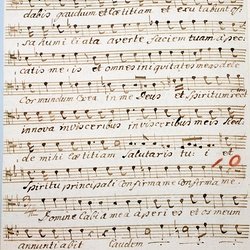 dabis gaudium et laetitiam et exultabunt os
sa humiliata averte faciem tuam a pec
catis meis et omnes iniquitates meas dele
Cor mundum Crea in me Deus et Spiritum rect
innova in visceribus in visceribus meis Red
de mihi laetitiam Salutaris tui et
Spiritu principali Confirma me confirma me
Domine labia mea aperies et os meum
annuntiabit Laudem